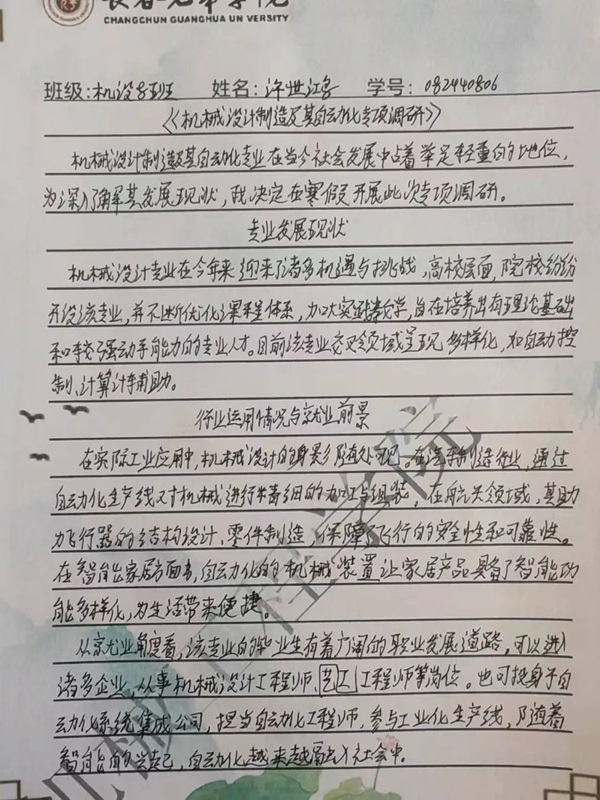 长春光华学院
CHANGCHUN GUANGHUA UN VERSITY
班级:机设8班 姓名:许世 学号:082440806
《机械设计制造及其自动化专项调研》
机械设计制造及其自动化专业在当今社会发展中占着举足轻重的地位,
为深入了解其发展现状,我决定在寒假开展此次专项调研。
专业发展现状
机械设计专业在今年来迎来了诸多机遇与挑战,高校层面,院校纷纷
开设该专业,并不断优化课程体系,加大实践教学,旨在培养出有理论基础
和较强动手能力的专业人才。目前该专业交叉领域呈现多样化,如自动控
制、计算计辅助。
行业运用情况与就业前景
在实际工业应用中,机械设计的身影随处可见。在汽车制造行业,通过
自动化生产线对机械进行精细的加工与组装,在航天领域,其助
力飞行器的结构设计、零件制造,保障飞行的安全性和可靠性。
在智能家居方面,自动化的机械装置让家居产品具备了智能功
能多样化,为生活带来便捷。
从就业角度看,该专业的毕业生有着广阔的职业发展道路,可以进入
诸多企业,从事机械设计工程师、艺工工程师等岗位。也可投身于自
动化系统集成公司,担当自动化工程师,参与工业化生产线,随着
智能的兴起,自动化越来越融入社会中。
工程学院
机械